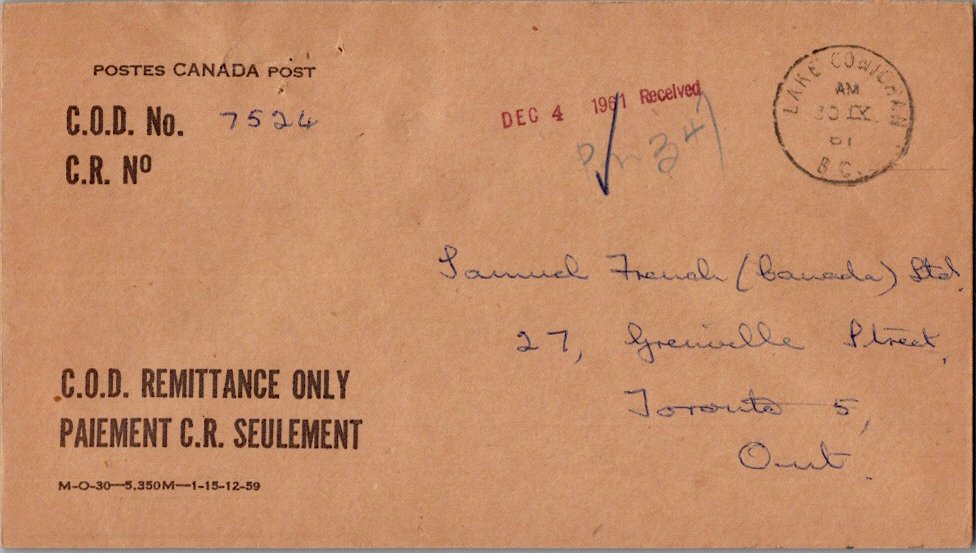 POSTES CANADA POST
C.O.D. No. 7524
C.R. Nº
DEC 4 1961 Received
LAKE COWICHAN
AM
B.C.
Samuel French (Canada) Ltd.
27, Grenville Street,
Toronto 5,
Ont.
C.O.D. REMITTANCE ONLY
PAIEMENT C.R. SEULEMENT
M-O-30—5,350M—1-15-12-59